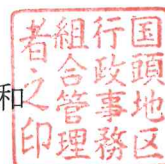 和
国頭地区
行政事務
組合管理
者之印